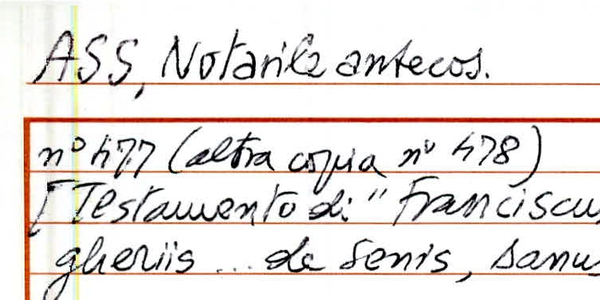 ASS, Notarile antecos.
n° 477 (altra copia n° 478)
[Testamento di "Franciscus
gheriis ... de Senis, sanus